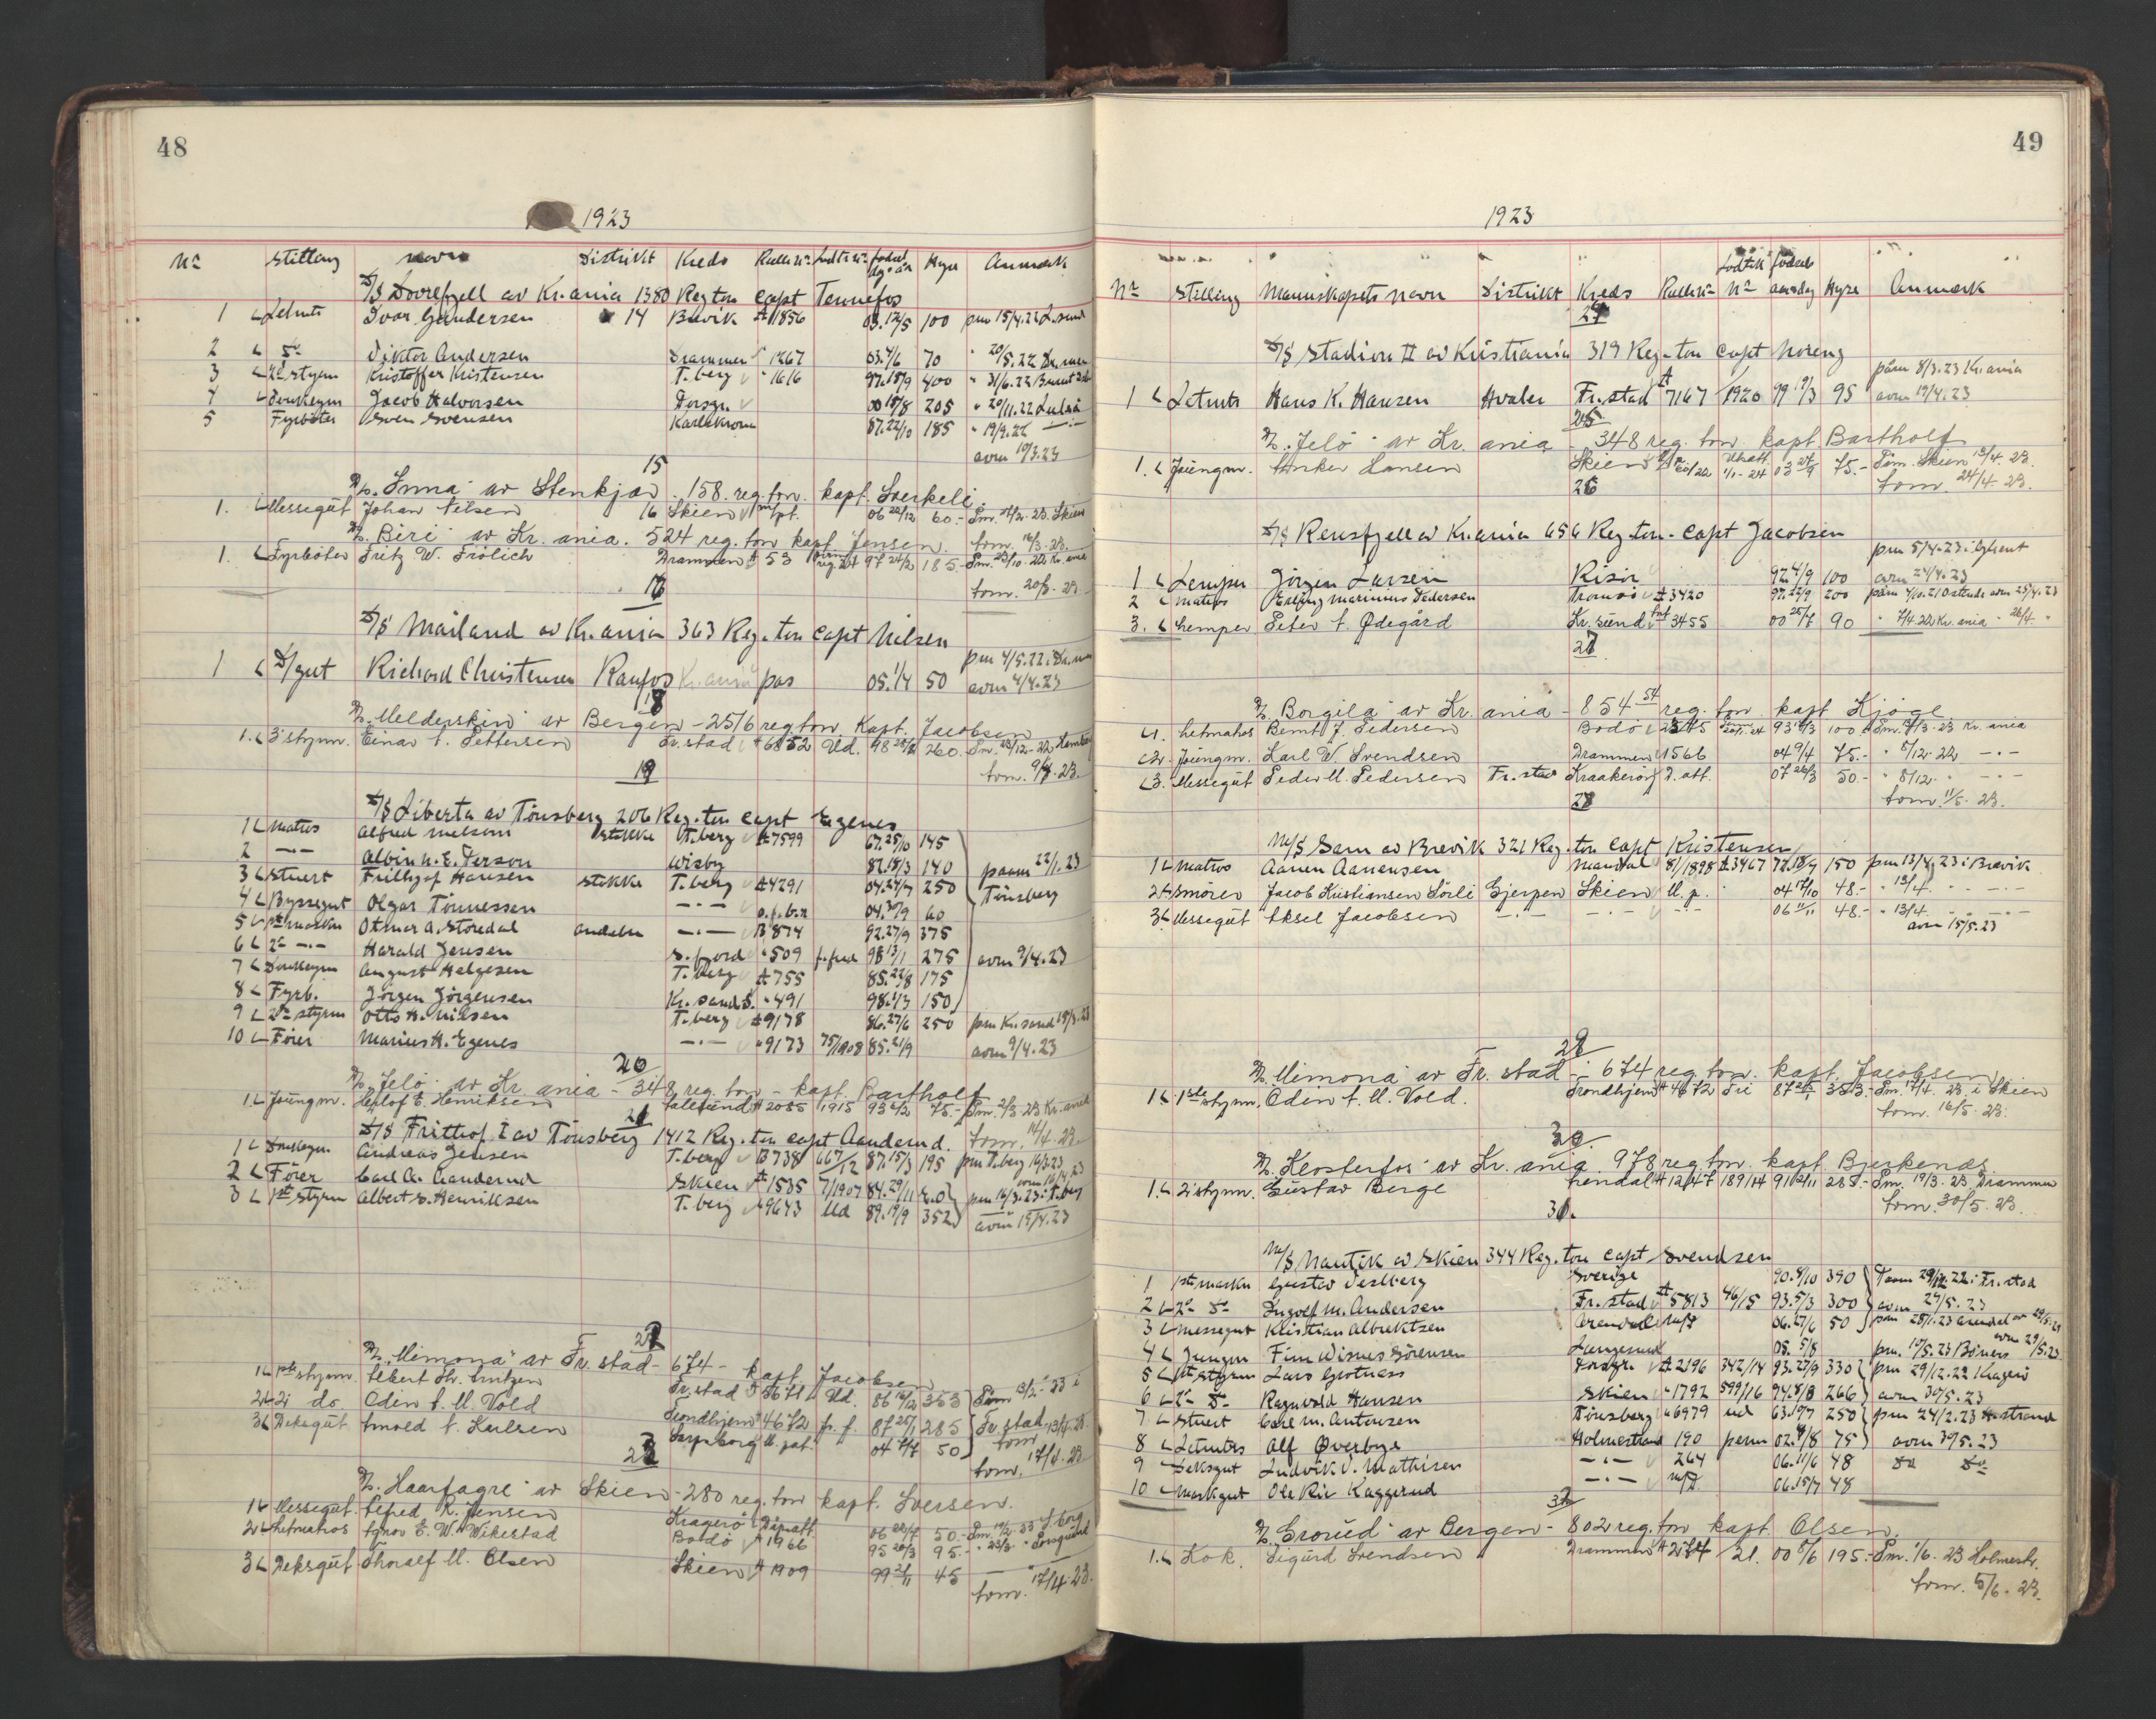 48
1923
No Stilling navn Distrikt Kreds Rulle No fødsel dg. år Hyre Anmærk
D/S Dovrefjell av Kr.ania 1380 Reg ton Capt Tennefos
1 Letmts Ivar Gundersen 14 Brevik A 1856 03.12/5 100 pm 15/4.22 L.sund
2 do Viktor Andersen Drammen " 1267 03.4/6 70 " 20/5.22 Dr.men
3 2n styrm Kristoffer Kristensen T.berg " 1616 97.18/9 400 " 31/6.22
4 Donkeym Jacob Halvorsen Porsgr. 00 18/8 205 " 20/11.22 Luleå
5 Fyrbøter Sven Svensen Karlskrona 87.22/10 185 " 19/9.22 —"—
avm 10/3.23
15
D/S "Inna" av Stenkjær. 158. reg. ton. kapt. Sverkeli.
1. Messegut Johan Nilsen 16 Skien 06 22/12 60.- Skien
D/S "Biri" av Kr. ania. 524 reg. ton kapt Jensen. tom. 16/3-23.
1. Fyrbøter Fritz W. Frölich Drammen A 53 97 24/2 185.- Pm. 23/10-22 Kr. ania
tom. 20/3-23.
D/S Mailand av Kr.ania 363 Reg. ton Capt Nilsen
1 D/gut Richard Christensen Raufos Kr.ania pas 05.1/4 50 pm 4/5.22 i Dr.men
avm 4/4.23
18
D/S "Melderskin" av Bergen - 2516 reg ton. Kapt. Jacobsen
1. 3 styrm. Einar A. Pettersen Fr.stad A 6852 Ud. 260.-
tom. 9/4-23.
19
D/S Liberta av Tönsberg 206 Reg. ton Capt Egenes
1 Matros Alfred Melsom Stokke T.berg A 7599 67.25/10 145
2 —"— Albin N. E. Person Wisby 87.18/3 140 paam 22/1.23
3 Stuert Frithjof Hansen Stokke T.berg A 4291 04.24/7 250 Tönsberg
4 Byssegut Olgar Tönnessen —"— 04.30/9 60
5 1st maskn Otmar A. Støredal Andebu —"— B 874 92.27/9 375
6 2n —"— Harald Jensen S.fjord " 509 98 13/1 275 avm 9/4.23
7 Donkeym August Helgesen T.berg A 755 85.22/8 175
8 Fyrb. Jörgen Jörgensen Kr.sand S. " 491 98.1/3 150
9 2n styrm Otto H. Nilsen T.berg A 9178 86.27/6 250 pm Kr.sand 19/3.23
10 Förer Marius H. Egenes —"— " 9173 75/1908 85.21/9 avm 9/4.23
20
D/S "Jelö" av Kr. ania - 348 reg. ton - kapt. Bartholf
1. Jungm. Henriksen Aalesund A 2055 1915 75.- Pm. 2/3-23 Kr.ania
21
D/S Frithjof I av Tönsberg 1412 Reg. ton Capt Aanderud. tom. 14/4-23.
1 Donkeym Andreas Jensen T.berg B 738 667/12 87.15/3 195 pm T.berg 16/3.23
2 Förer Carl A. Aanderud Skien A 1535 7/1907 84.29/11 avm 16/4.23
3 1st styrm Albert S. Henriksen T.berg " 9643 Ud 89.19/9 352 pm 16/3.23 i T.berg
avm 15/4.23
22
D/S "Mimona" av Fr. stad - 674 - kapt Jacobsen
1 1ste styrm. Albert Th. Arntzen Fr.stad Ud. 353 Pam 13/2-23 i
2 2i do. Oden A. M. Vold Trondhjem 4672 f. f. 87 25/1 285 Fr. stad
3 Deksgut Arnold A. Karlsen Sarpsborg 50 tom. 17/4-23.
23
D/S "Haarfagre" av Skien - 280 reg. ton kapt. Iversen.
1 Messegut Alfred R. Jensen Kragerö 50.-
2 Letmatros E. W. Wikestad Bodö A 1966 95 20/3 95.-
3 Deksgut Thoralf M. Olsen Skien A 1909 45 —"—
tom. 17/4-23.
49
1923
No Stilling Mannskapets navn Distrikt Kreds Rulle No No Hyre Anmærk
24
D/S Stadion II av Kristiania 319 Reg. ton Capt Noreng
paam 8/3.23 Kr.ania
1 Letmts Hans K. Hansen Hvaler Fr.stad A 7167 1920 99 19/3 95 avm 19/4.23
25
D/S "Jelö" av Kr. ania - 348 reg. ton. kapt Bartholf
1. Jungm. Anker Hansen Skien 75.- Pm. Skien 13/4-23.
tom. 24/4-23.
26
D/S Rensfjell av Kr.ania 656 Reg. ton. Capt Jacobsen
pm 5/4.23 i Ghent
1 Lemper Jörgen Larsen Risör 92.4/9 100 avm 24/4.23
2 Matros Erling Marinius Pedersen Tromsö A 3420 97.22/9 200 avm 25/4.23
3. Lemper Peter A. Ødegård Kr.sund 3455 00 25/7 90 " 7/4 22 Kr.ania " 26/4. "
27
D/S "Borgila" av Kr. ania - 854 54 reg. ton. kapt Kjöge
1. Letmatros Bernt J. Pedersen Bodö 100 Kr. ania
2. Jungm. Karl W. Svendsen Drammen 1566 04 9/4 75.- " 8/12-22 —"—
3. Messegut Peder M. Pedersen Fr.stad Kraakeröy P.att. 07 26/3 50.- " 8/12 " —"—
28 tom. 11/5-23.
M/S Sam av Brevik 321 Reg. ton Capt Kristensen
1 Matros Aanen Aanensen Mandal 81/1898 A 3467 77.18/9 150 pm 13/4.23 i Brevik
2 Smörer Jacob Kristiansen Sörli Gjerpen Skien M. p. 04 17/10 48.- " 13/4. " —"—
3 Messegut Aksel Jacobsen —"— —"— —"— 06 11/11 48.- " 13/4. —"—
avm 15/5.23
29
D/S "Mimona" av Fr. stad - 674 reg. ton. kapt. Jacobsen
1. 1ste styrm. Oden A. M. Vold. Trondhjem A 4672 Fri 87 25/1 353.- Pm. 17/4-23. i Skien
tom. 16/5-23.
30.
D/S "Klosterfos" av Kr. ania. 978 reg. ton. kapt. Bjerkenæs.
1. 2i styrm. Gustav Berge Arendal A 1247 189/14 91 285.- Pm. 19/3-23 Drammen
tom. 30/5-23.
31.
M/S Nautik av Skien 344 Reg. ton Capt Svendsen
1 1st maskn Gustav Veslberg Sverige 90.8/10 390 Paam 29/12.22 i Fr.stad
2 2n do Ingolf M. Andersen Fr.stad A 5813 46/15 93.5/3 300 avm 29/5.23
3 Messegut Kristian Albrektsen Arendal 06.27/6 50 pm 25/1.23 Arendal av 29/5.23
4 Jungm Finn Wisnes Sörensen Langesund 05.5/8 pm. 10/5.23 avm 29/5.23
5 1st styrm Lars Grotnæss Porsgr. A 2196 342/14 93.27/9 330 pm 29/12.22 Kragerö
6 2n do Ragnvald Hansen Skien " 1792 599/16 94.8/8 266 avm 30/5.23
7 Stuert Carl M. Antonsen Tönsberg " 6979 ud 63.19/7 250 pm 24/2.23 H.strand
8 Letmtrs Alf Øverbye Holmestrand 190 perm 02.8/8 75 avm 30/5.23
9 Deksgut Ludvik V. Mathisen —"— 264 06.11/6 48 do do
10 Maskgut Ole Riv Kaggerud —"— 06.15/7 48
32
D/S "Grorud" av Bergen - 802 reg. ton kapt Olsen.
1. Kok. Sigurd Svendsen Drammen 21. 00 8/6 195.- Pm. 1/6-23 Holmestr.
tom. 5/6-23.